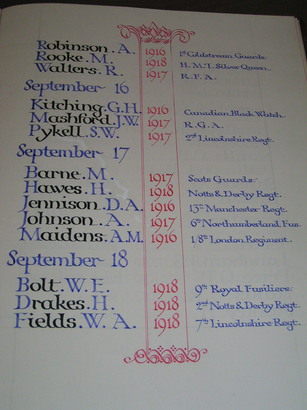 Robinson. A. 1916 1st Coldstream Guards.
Rooke. M. 1918 H.M.T. Silver Queen.
Walters. R. 1917 R.F.A.
September 16
Kitching. G.H. 1916 Canadian Black Watch.
Mashford. J.W. 1917 R.G.A.
Pykell. S.W. 1917 2nd Lincolnshire Regt.
September 17
Barne. M. 1917 Scots Guards.
Hawes. H. 1918 Notts & Derby Regt.
Jennison. D.A. 1916 13th Manchester Regt.
Johnson. A. 1917 6th Northumberland Fus.
Maidens. A.M. 1916 1/8th London Regiment.
September 18
Bolt. W. E. 1918 9th Royal Fusiliers.
Drakes. H. 1918 2nd Notts & Derby Regt.
Fields. W. A. 1918 7th Lincolnshire Regt.